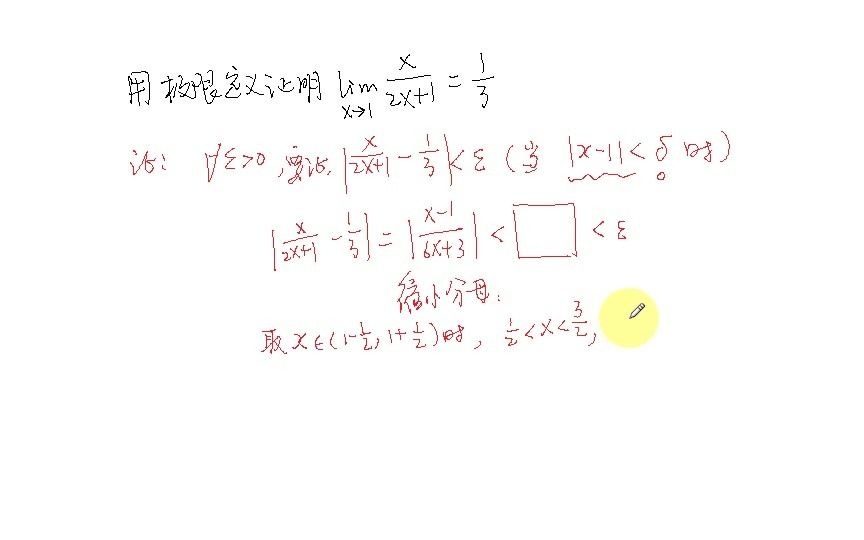 用极限定义证明 lim x→1 x/(2x+1) = 1/3
证: ∀ε>0, 要证 |x/(2x+1) - 1/3| < ε (当 |x-1| < δ 时)
|x/(2x+1) - 1/3| = |(x-1)/(6x+3)| < □ < ε
缩小分母.
取 x∈(1-1/2, 1+1/2)时, 1/2 < x < 3/2,